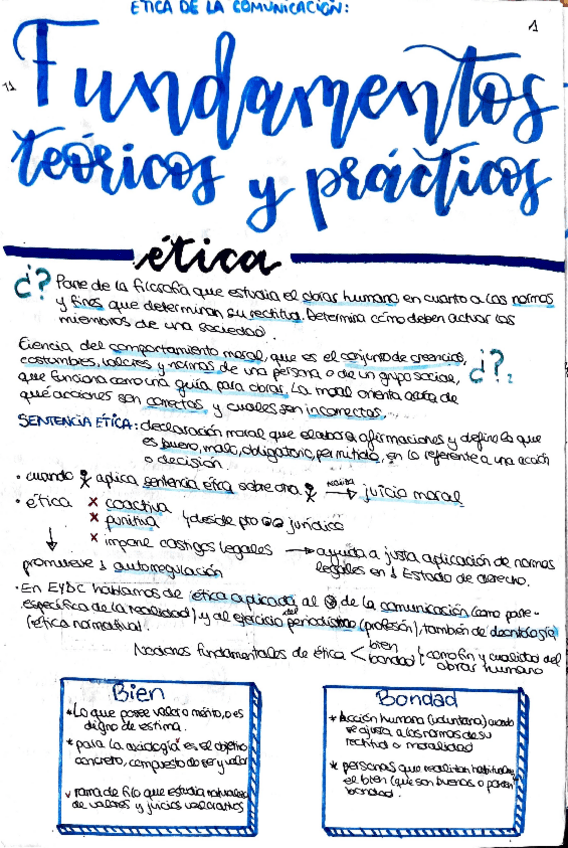 ETICA DE LA COMUNICACIÓN:
1
Fundamentos
teóricos y prácticos
ética
¿? Parte de la filosofía que estudia el obrar humano en cuanto a las normas
y fines que determinan su rectitud. Determina cómo deben actuar los
miembros de una sociedad.
Ciencia del comportamiento moral, que es el conjunto de creencias,
costumbres, valores y normas de una persona o de un grupo social, ¿?
que funciona como una guía para obrar. La moral orienta acerca de
qué acciones son correctas y cuales son incorrectas.
SENTENCIA ÉTICA: declaración moral que elabora afirmaciones y define lo que
es bueno, malo, obligatorio, permitido, en lo referente a una acción
o decisión.
• cuando aplica sentencia ética sobre otra → realiza juicio moral
• ética x coactiva
x punitiva
x impone castigos legales → ayuda a justa aplicación de normas
legales en 1 Estado de derecho.
↓
promueve 1 autorregulación
• En EyDC hablamos de ética aplicada al de la comunicación (como parte
específica de la realidad) y al ejercicio del periodismo (profesión), también de deontología
(ética normativa).
Nociones fundamentales de ética < bien
bondad } como fin y cualidad del
obrar humano
Bien
* Lo que posee valor o mérito, o es
digno de estima.
* para la axiología es el objeto
concreto, compuesto de ser y valor
rama de filo que estudia naturaleza
de valores y juicios valorativos
Bondad
* Acción humana (voluntaria) cuando
se ajusta a las normas de su
rectitud o moralidad
* personas que realizan habitualm.
el bien (que son buenas o poseen
bondad).